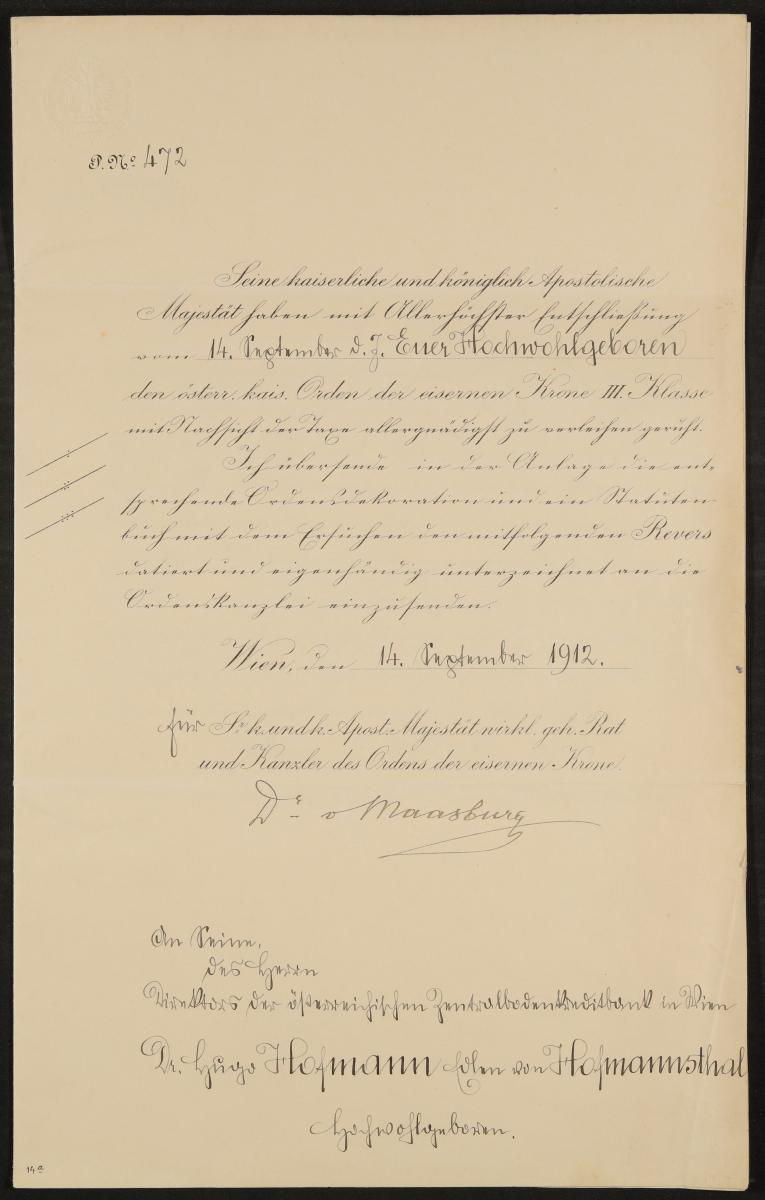 P. No 472
Seine kaiserliche und königlich Apostolische
Majestät haben mit Allerhöchster Entschließung
vom 14. September d. J. Euer Hochwohlgeboren
den österr. kais. Orden der eisernen Krone III. Klasse
mit Nachsicht der Taxe allergnädigst zu verleihen geruht.
Ich übersende in der Anlage die ent-
sprechende Ordensdekoration und ein Statuten-
buch mit dem Ersuchen den mitfolgenden Revers
datiert und eigenhändig unterzeichnet an die
Ordenskanzlei einzusenden.
Wien, den 14. September 1912.
für Sr. k. und k. Apost. Majestät wirkl. geh. Rat
und Kanzler des Ordens der eisernen Krone.
Dr. v Maasburg
An Seine,
des Herrn
Direktors der österreichischen Zentralbodenkreditbank in Wien
Dr. Hugo Hofmann Edlen von Hofmannsthal
Hochwohlgeboren.
14a